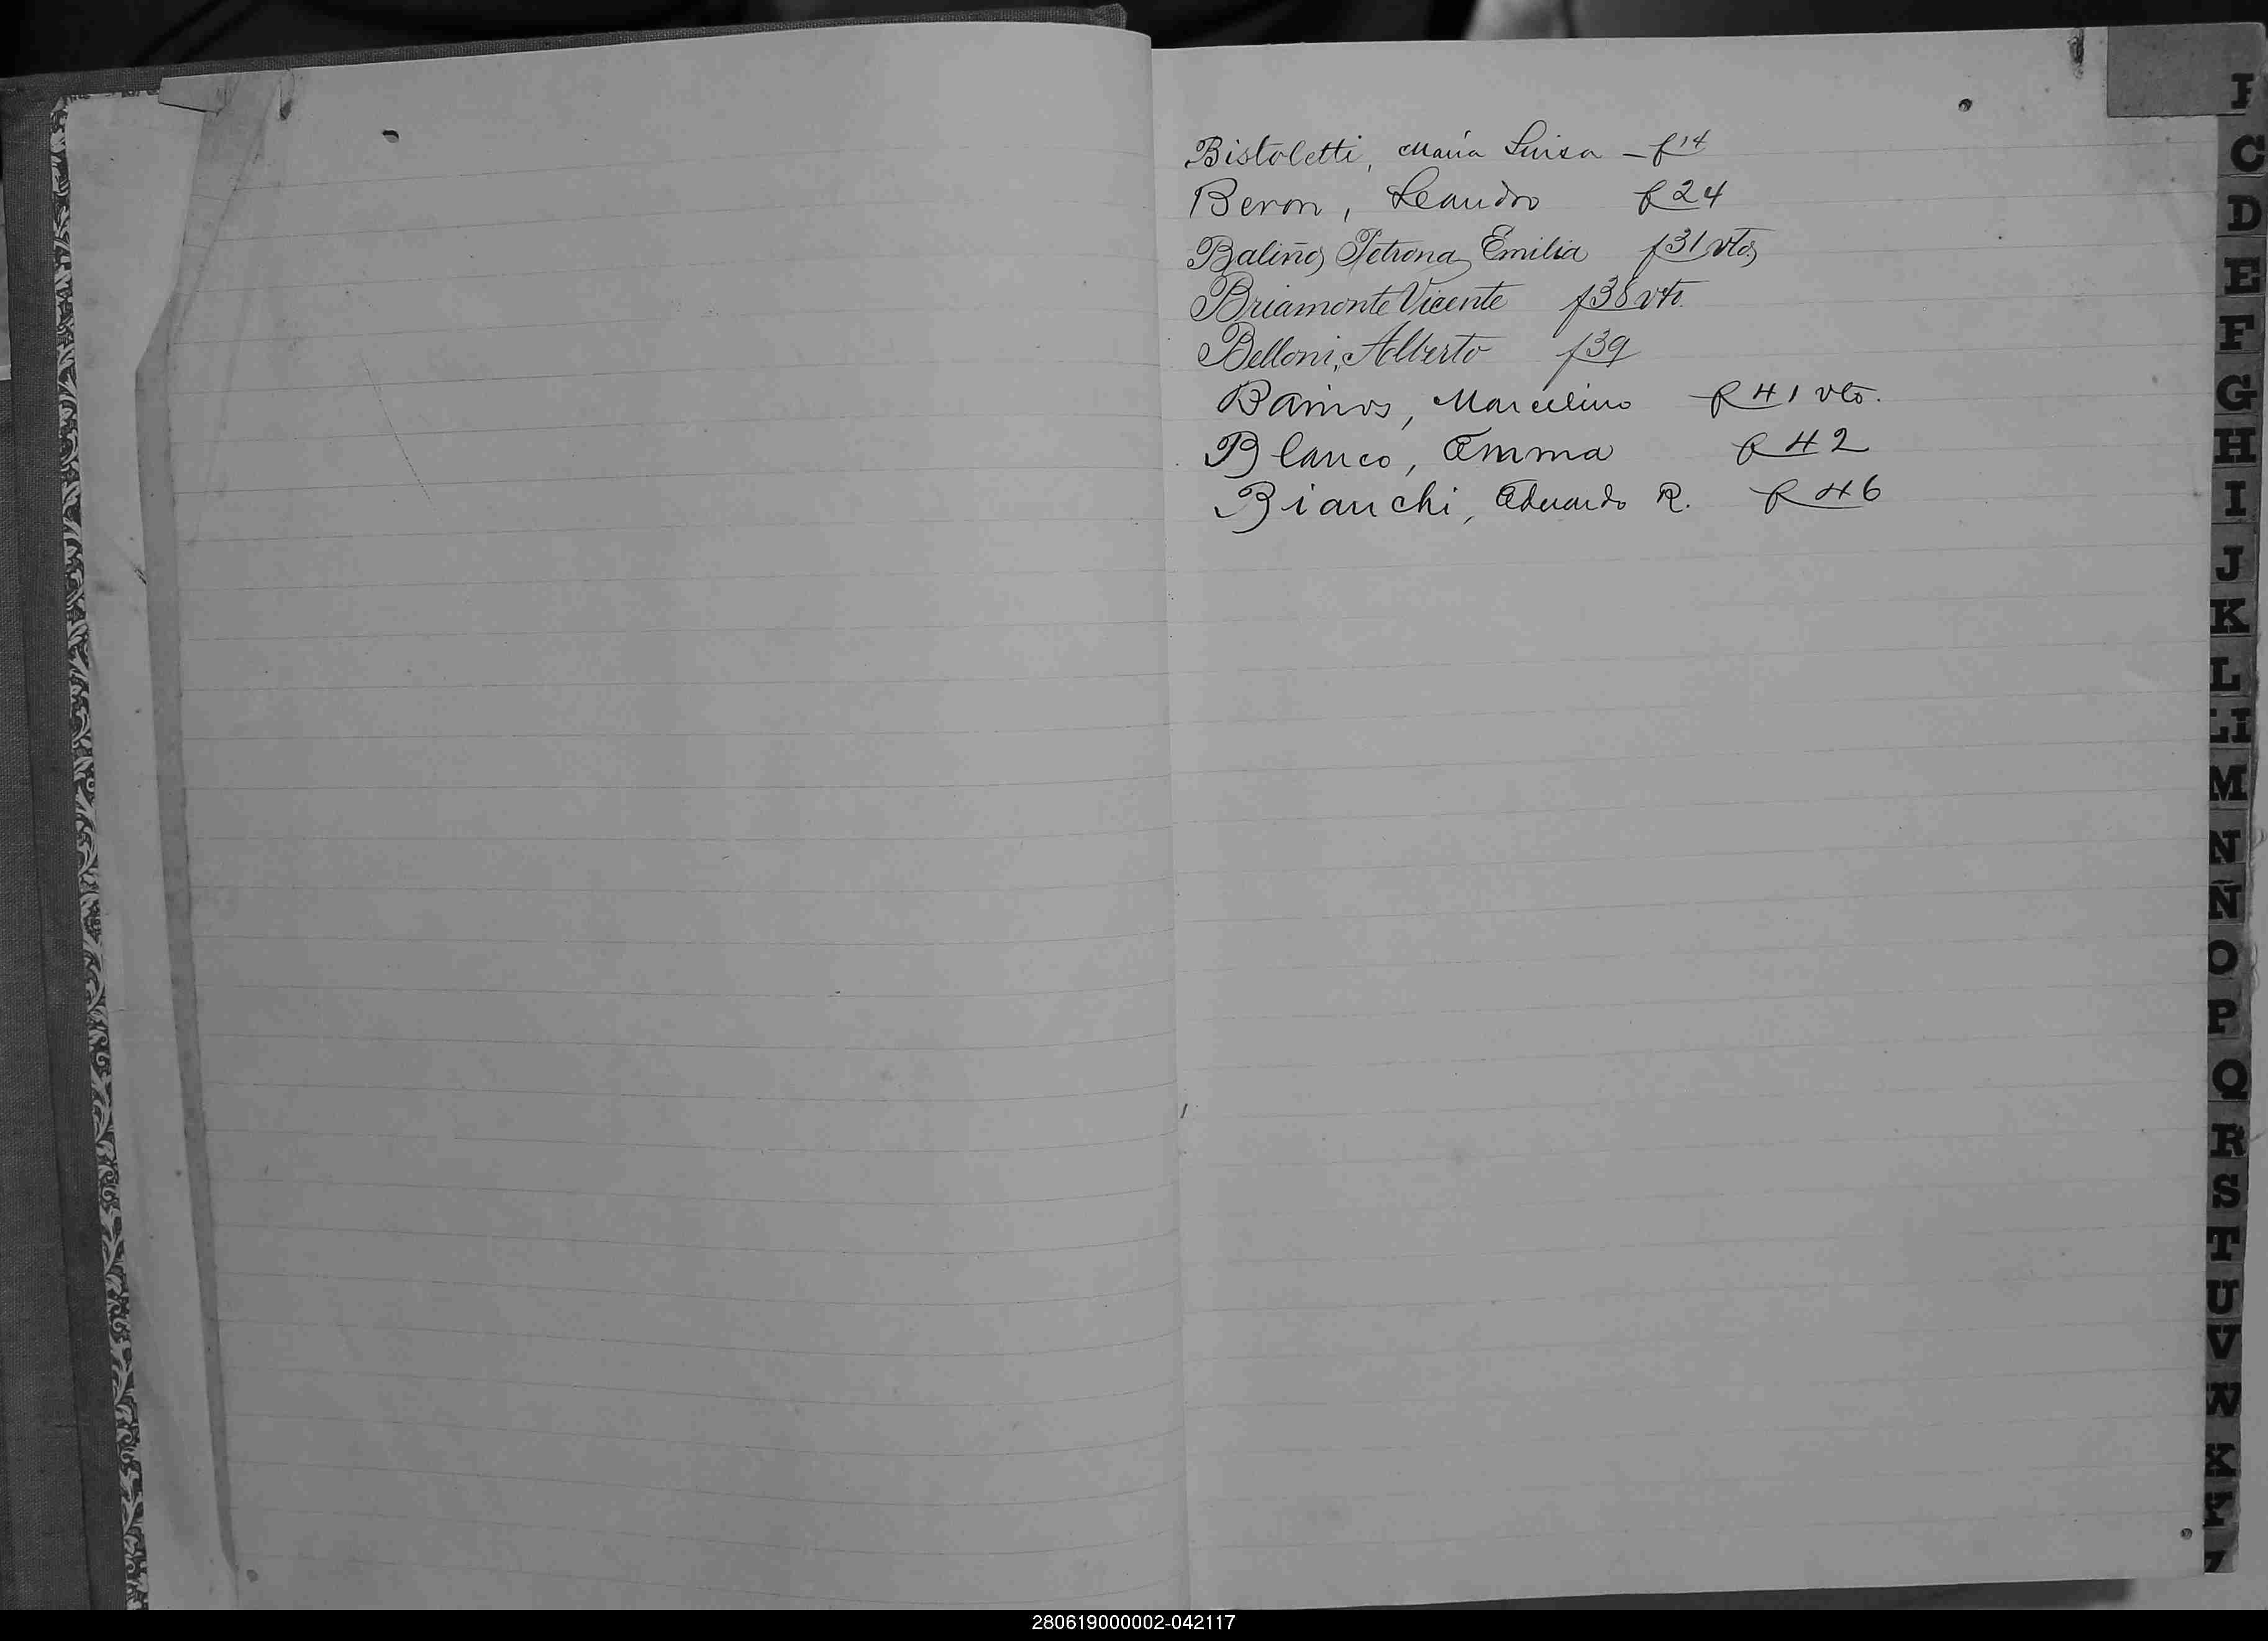 Bistoletti, María Luisa - f 14
Beron, Leandro f 24
Baliño, Petrona Emilia f 31 vto,
Briamonte Vicente f 38 vto.
Belloni, Alberto f 39
Marcelino f 41 vto.
Blanco, Emma f 42
Bianchi, Eduardo R. f 46
C
D
E
F
G
H
I
J
K
L
M
N
Ñ
O
P
Q
R
S
T
U
V
W
X
280619000002-042117